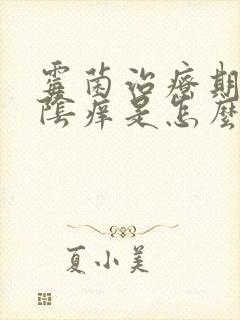 霉菌治疗期
阴痒是怎么
夏小美